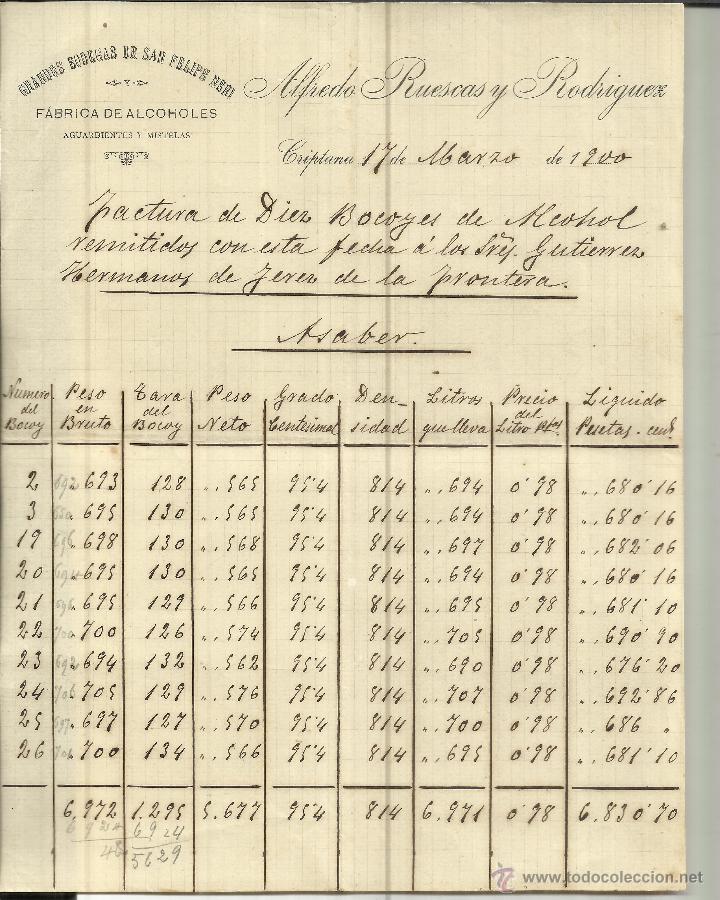 GRANDES BODEGAS DE SAN FELIPE NERI
Y
FÁBRICA DE ALCOHOLES
AGUARDIENTES Y MISTELAS
Alfredo Ruescas y Rodriguez
Criptana 17 de Marzo de 1900
Factura de Diez Bocoyes de Alcohol
remitidos con esta fecha á los Sres. Gutierrez
Hermanos de Jerez de la Frontera.
Asaber.
Numero del Bocoy Peso en Bruto Tara del Bocoy Peso Neto Grado Centesimal Den-sidad Litros que lleva Precio del Litro Ptas. Liquido Pesetas cents.
2 693 128 „.565 95'4 814 „.694 0'98 „.680'16
3 695 130 „.565 95'4 814 „.694 0'98 „.680'16
19 698 130 „.568 95'4 814 „.697 0'98 „.682'06
20 695 130 „.565 95'4 814 „.694 0'98 „.680'16
21 695 129 „.566 95'4 814 „.695 0'98 „.681'10
22 700 126 „.574 95'4 814 „.705 0'98 „.690'90
23 694 132 „.562 95'4 814 „.690 0'98 „.676'20
24 705 129 „.576 95'4 814 „.707 0'98 „.692'86
25 697 127 „.570 95'4 814 „.700 0'98 „.686 „
26 700 134 „.566 95'4 814 „.695 0'98 „.681'10
6.972 1.295 5.677 95'4 814 6.971 0'98 6.830'70
6924 6924
48 5629
www.todocoleccion.net